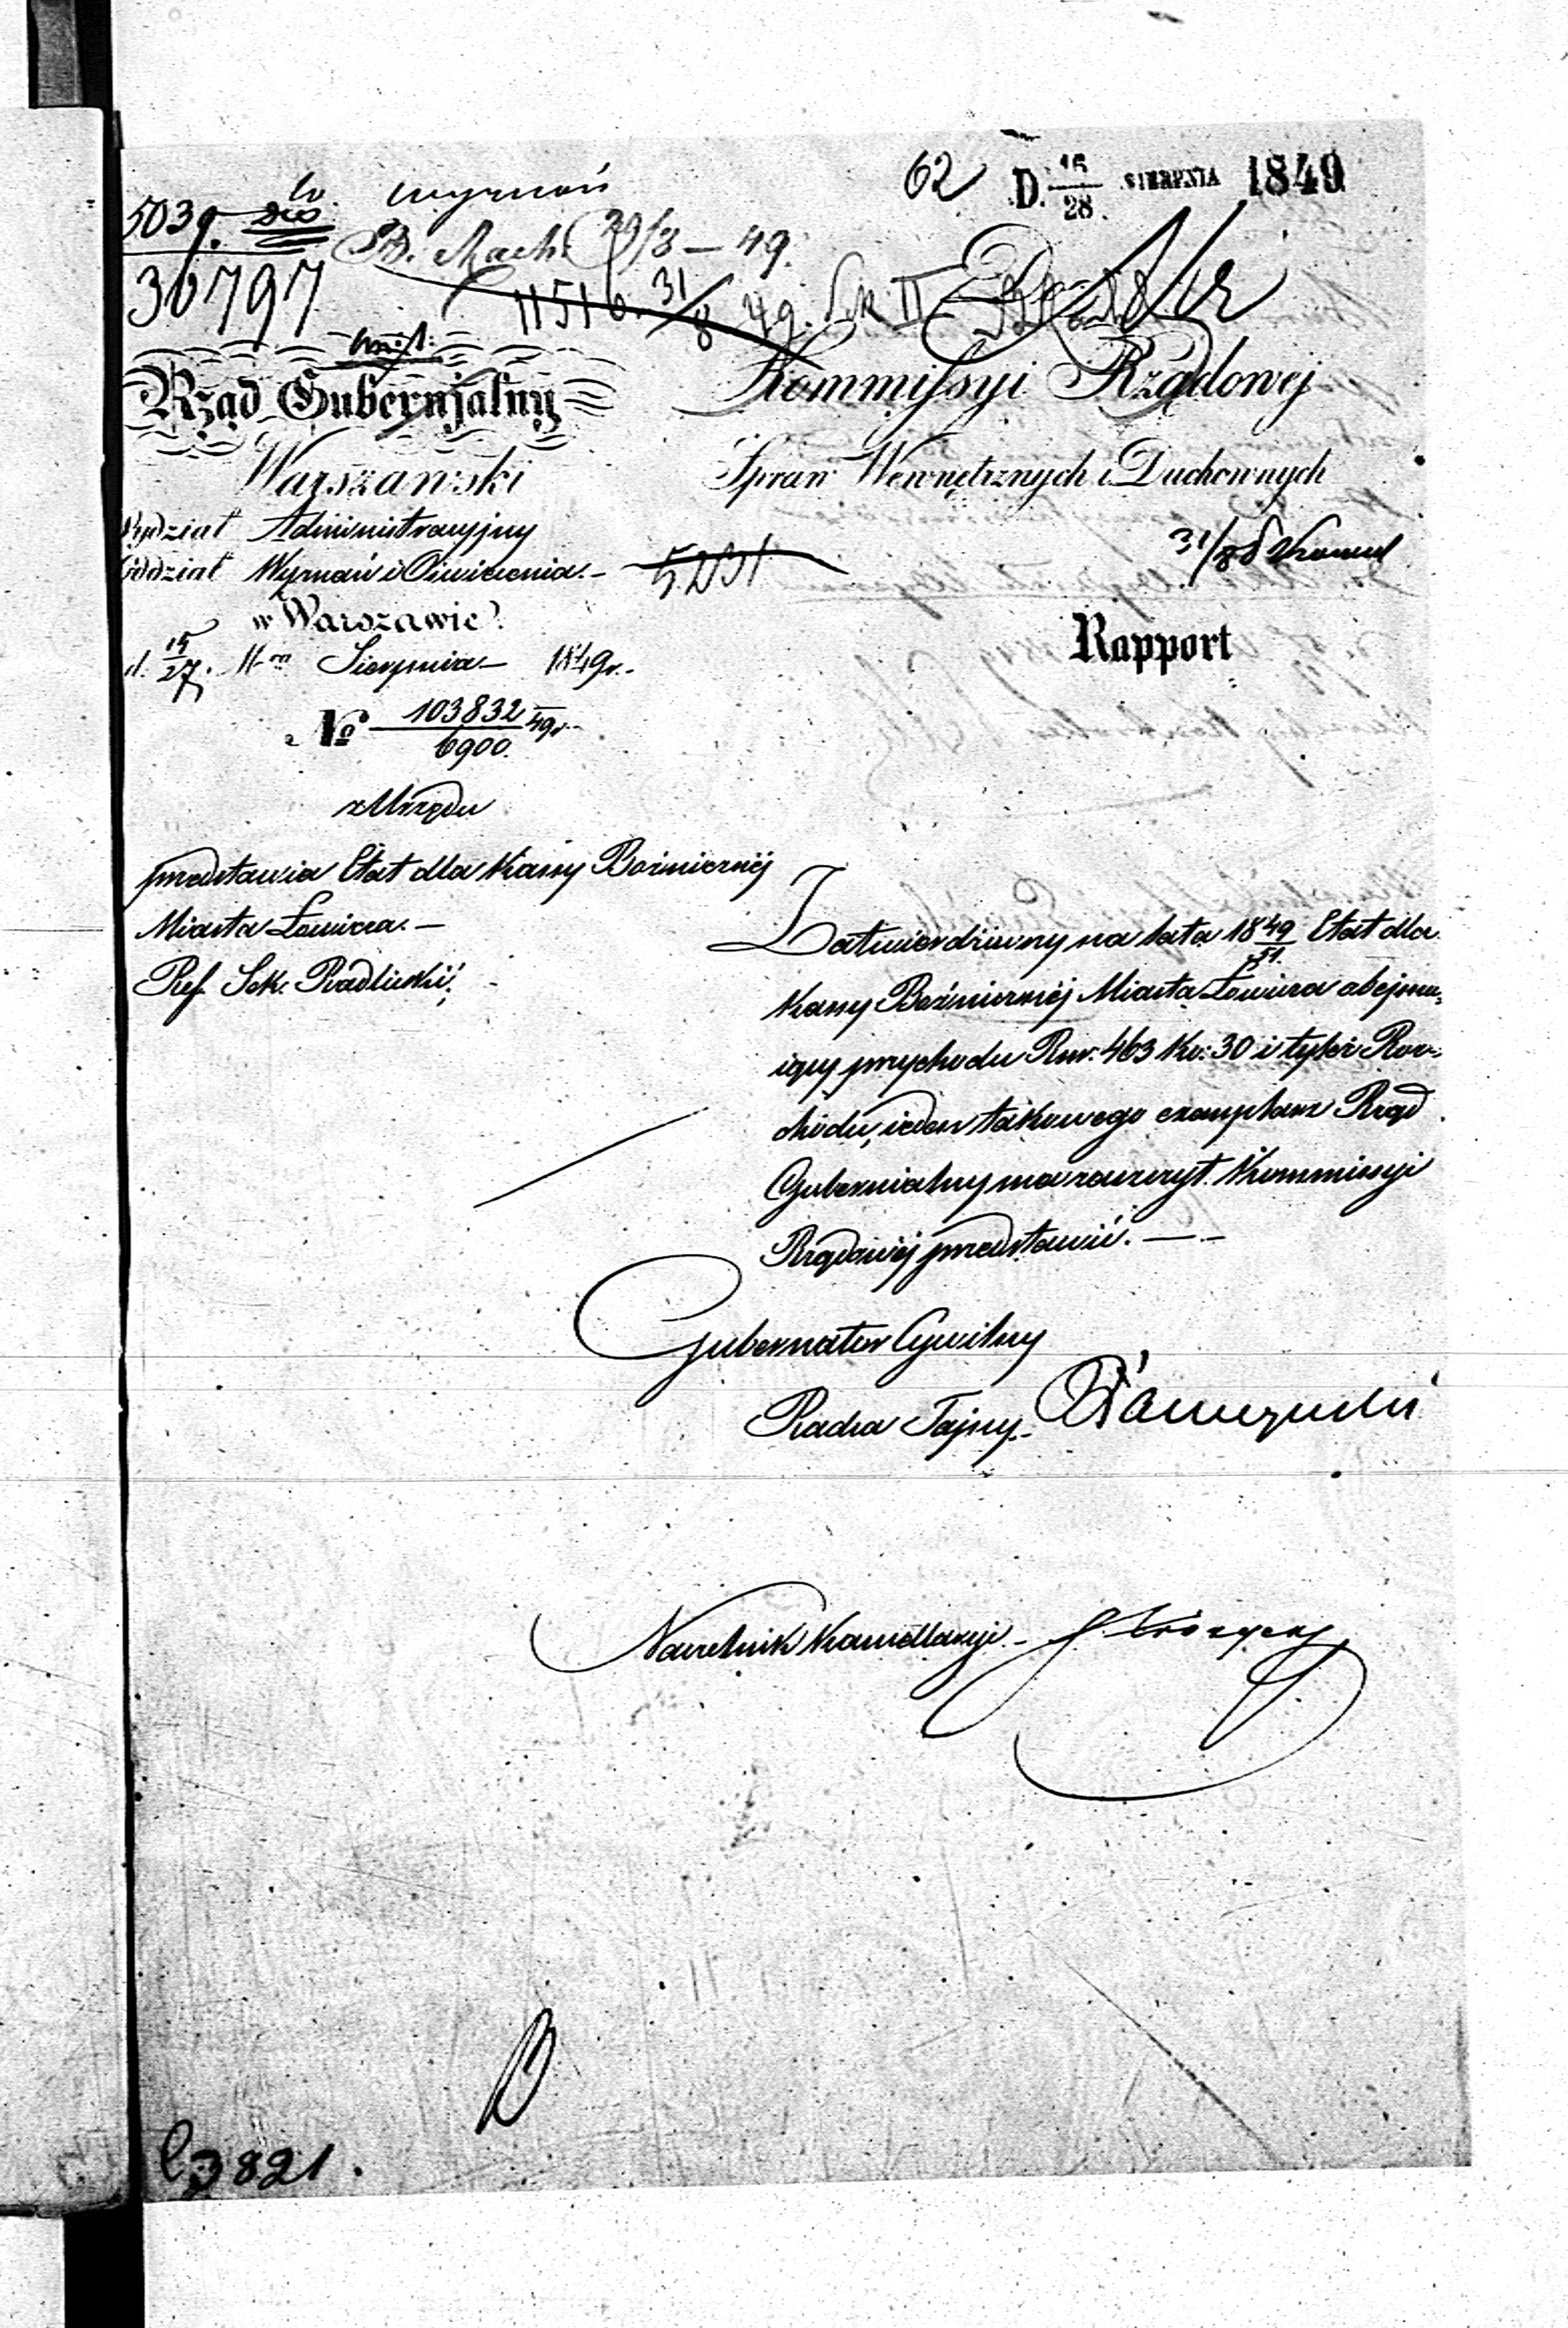 62 D. 16/28 SIERPNIA 1849
wyznań
5039.
30797
29/8 – 49.
11516. 31/8 49.
Rząd Gubernjalny
Warszawski
Wydział Administracyjny
Oddział Wyznań i Oświecenia.–
w Warszawie
d. 15/27. M-ca Sierpnia 1849r.
No 103832/6900. 49r.
z Urzędu
przedstawia Etat dla Kassy Bożniczéj
Miasta Łowicza.–
Ref. Sek. Radlicki.
5231
Kommissyi Rządowej
Spraw Wewnętrznych i Duchownych
31/8
Rapport
Zatwierdziwszy na lata 1849/51. Etat dla
Kassy Bożniczéj Miasta Łowicza obejmu-
iący przychodu Rsr. 463 Ko: 30 i tyleż Roz-
chodu, ieden takowego exemplarz Rząd
Gubernialny ma zaszczyt Kommissyi
Rządowéj przedstawić.–
Gubernator Cywilny
Radca Tajny.
Naczelnik Kancellaryi.–
3821.